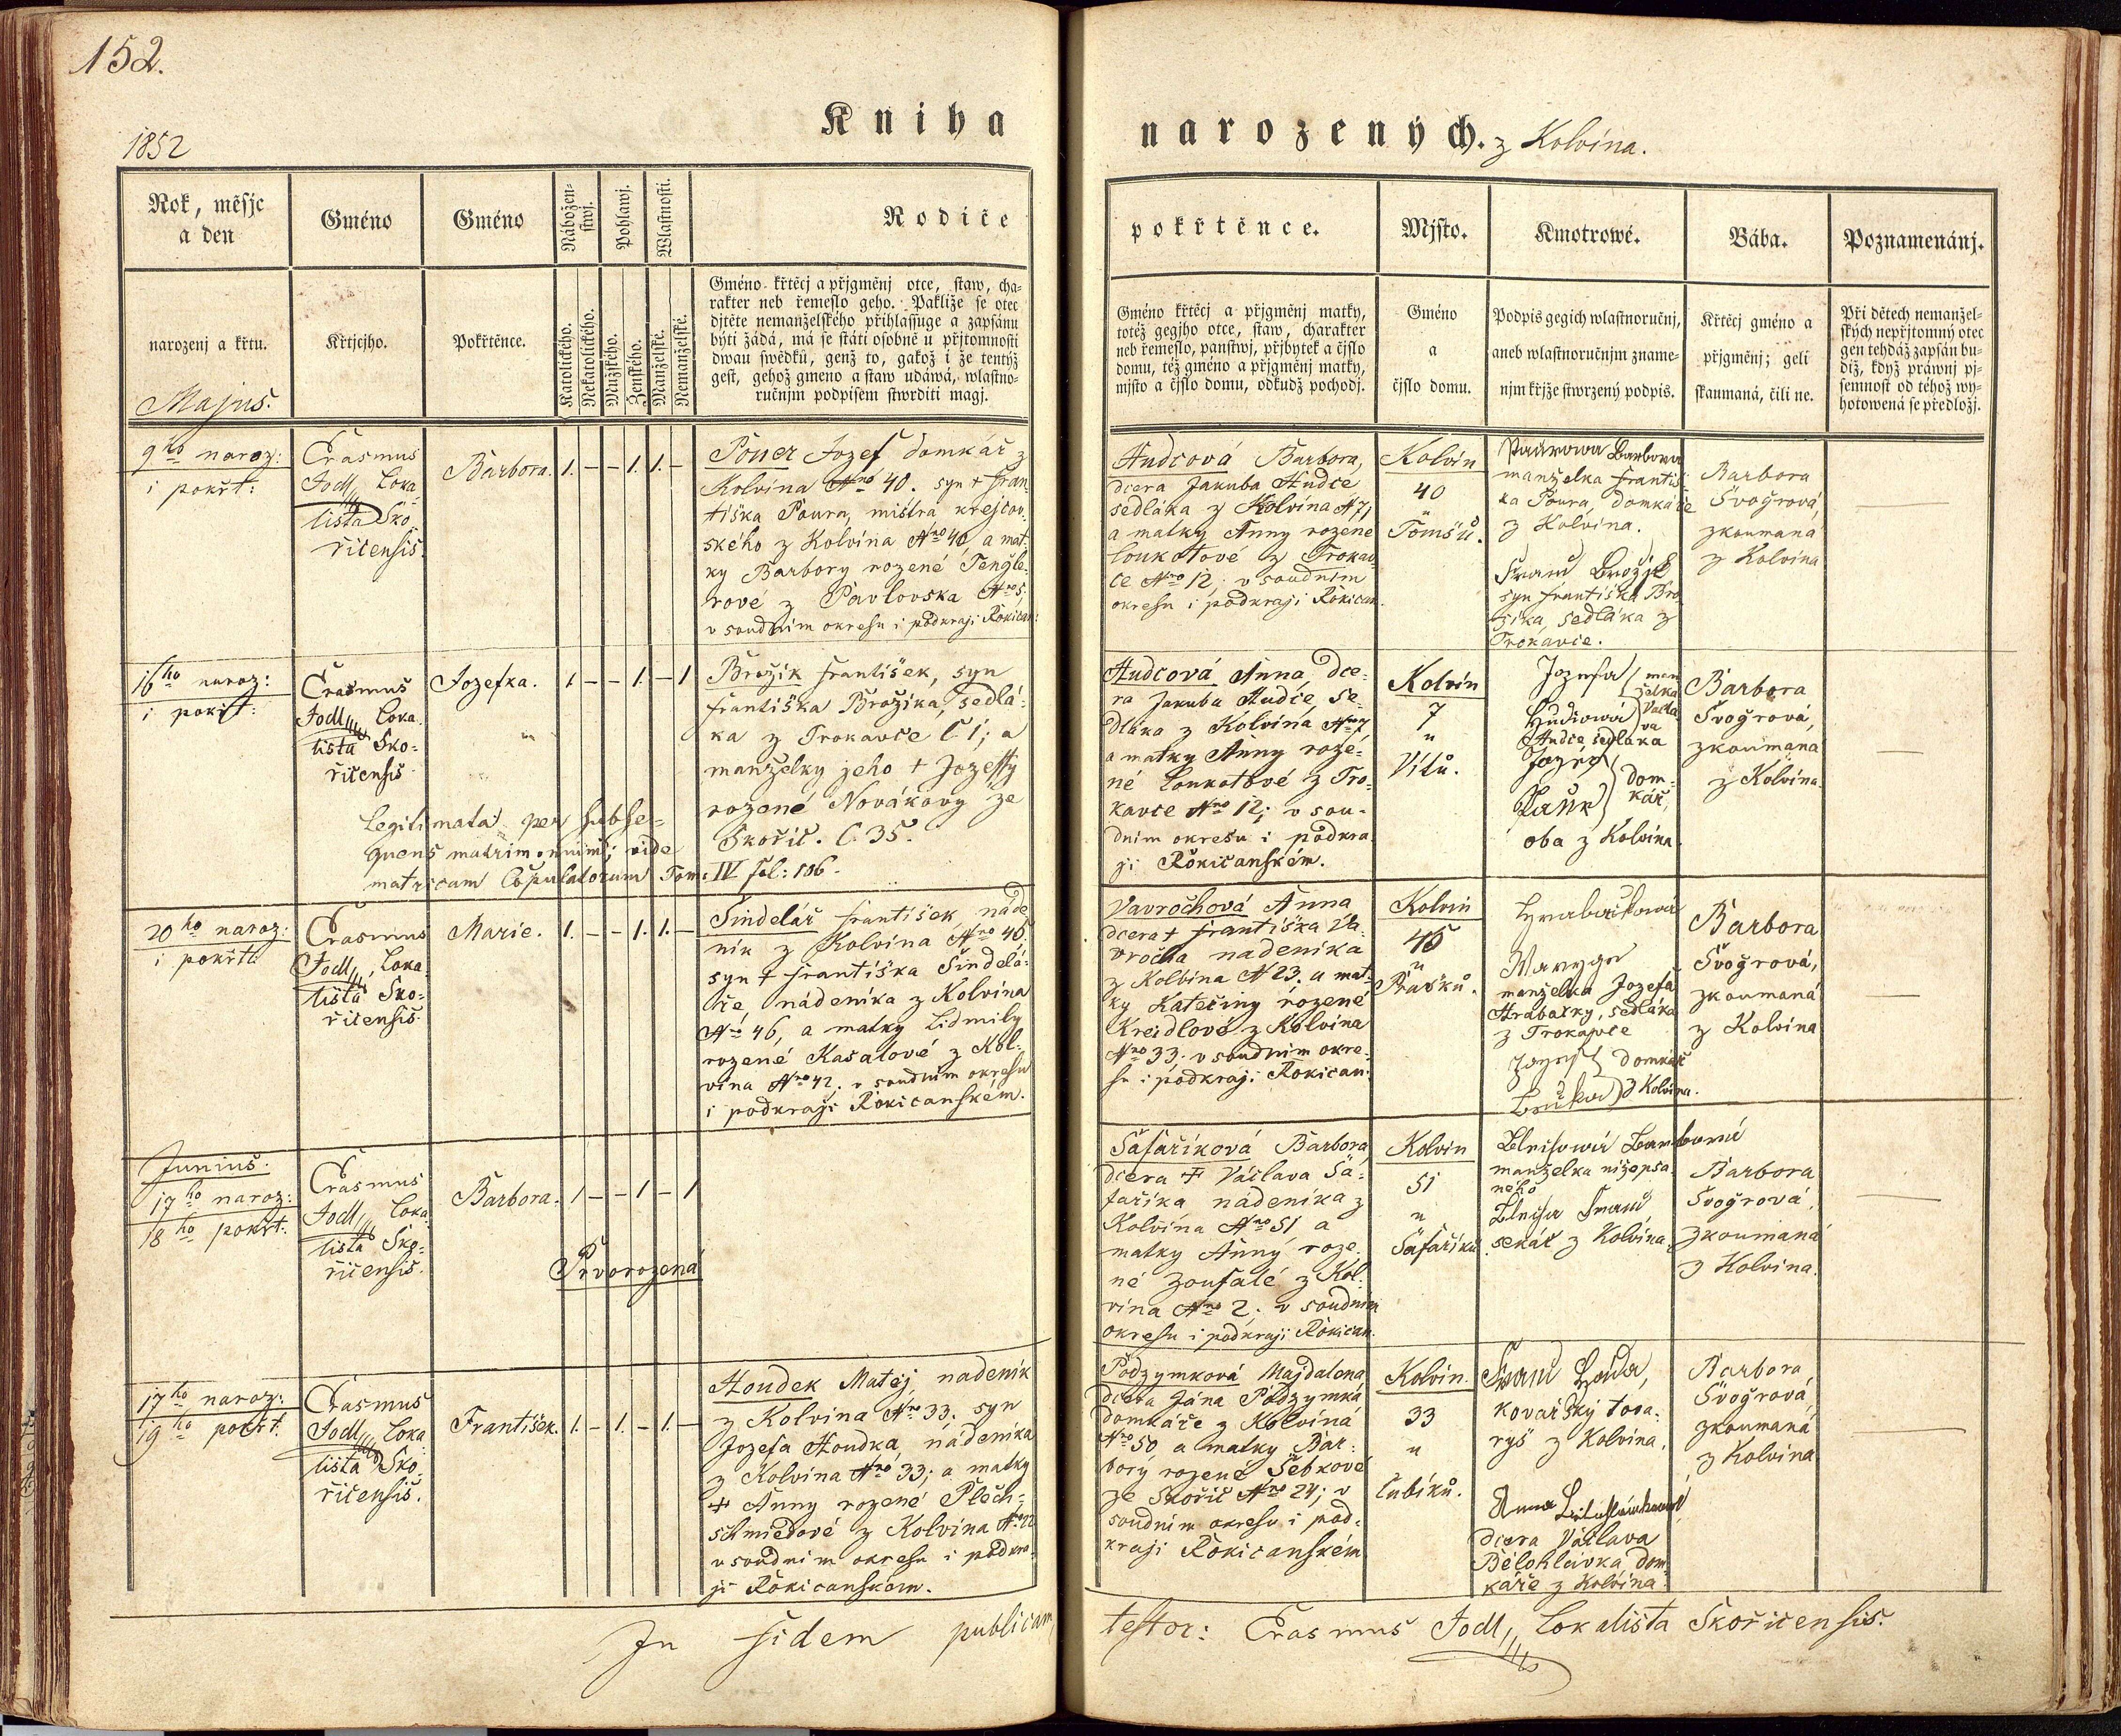 152.
1852
Kniha
narozených. z Kolvína.
Rok, měsjc
a den
narozenj a křtu.
Majus.
Gméno
Křtjcjho.
Gméno
Pokřtěnce.
Nábožen-
stwj.
Pohlawj.
Wlastnosti.
Katolického.
Nekatolického.
Mužského.
Ženského.
Manželské.
Nemanželské.
Rodiče
Gméno křtěcj a přjgměnj otce, staw, cha-
rakter neb řemeslo geho. Pakliže se otec
djtěte nemanželského přihlassuge a zapsánu
býti žádá, má se státi osobně u přjtomnosti
dwau swědků, genž to, gakož i že tentýž
gest, gehož gmeno a staw udáwá, wlastno-
ručnjm podpisem stwrditi magj.
pokřtěnce.
Gméno křtěcj a přjgměnj matky,
totéž gegjho otce, staw, charakter
neb řemeslo, panstwj, přjbytek a čjslo
domu, též gméno a přjgměnj matky,
mjsto a čjslo domu, odkudž pochodj.
Mjsto.
Gméno
a
čjslo domu.
Kmotrowé.
Podpis gegich wlastnoručnj,
aneb wlastnoručnjm zname-
njm křjže stwrzený podpis.
Bába.
Křtěcj gméno a
přjgměnj; geli
skaumaná, čili ne.
Poznamenánj.
Při dětech nemanžel-
ských nepřjtomný otec
gen tehdáž zapsán bu-
diž, když práwnj pj-
semnost od téhož wy-
hotowená se předložj.
9ho naroz:
i pokřt:
Erasmus
Jodl, Loka-
lista Sko-
řicensis.
Barbora.
1. – – 1. 1. –
Pouer Jozef domkář z
Kolvína Nro 40. syn + Fran-
tiška Poura, mistra krejčov-
ského z Kolvína Nro 40, a mat-
ky Barbory rozené Tengle-
rové z Pavlovska Nro 5;
v soudním okresu i podkraji Rokican:
Hudcová Barbora,
dcera Jakuba Hudce
sedláka z Kolvína N 7,
a matky Anny rozené
Loukotové z Trokav-
ce Nro 12; v soudním
okresu i podkraji Rokican.
Kolvín
40
u
Tomšů.
Paurowa Barbora
manželka Františ-
ka Poura, domkáře
z Kolvína.
Franc Brožik
syn Františka Bro-
žíka, sedláka z
Trokavce.
Barbora
Švogrová,
zkoumaná
z Kolvína
16ho naroz:
i pokřt:
Erasmus
Jodl, Loka-
lista Sko-
řicensis
Jozefka.
1 – – 1. – 1
Brožík František, syn
Františka Brožíka, sedlá-
ka z Trokavce Č 1; a
manželky jeho + Jozeffy
rozené Novákovy ze
Skořic. Č. 35.
Legitimata per subse-
quens matrimonium; vide
matricam Copulatorum Tom: IV fol: 106.
Hudcová Anna, dce-
ra Jakuba Hudce, se-
dláka z Kolvína Nro 7
a matky Anny roze-
né Loukotové z Tro-
kavce Nro 12; v sou-
dním okresu i podkra-
ji Rokičanském.
Kolvín
7
u
Vítů.
Jozefa man
želka
Hudcowá Václa
va
Hudce, sedláka
Jozef
Pauer dom-
kář,
oba z Kolvína
Barbora
Švogrová,
zkoumaná
z Kolvína.
20ho naroz:
i pokřtě
Erasmus
Jodl, Loka-
lista Sko-
řicensis.
Marie.
1. – – 1. 1. –
Šindelář František, náde-
ník z Kolvína Nro 46.
syn + Františka Šindelá-
ře nádeníka z Kolvína
Nro 46, a matky Lidmily
rozené Kasalové z Kol-
vína Nro 42. v soudním okresu
i podkraji Rokicanském.
Vavrochová Anna
dcera + Františka Va-
vrocha nadeníka
z Kolvína N 23. a mat-
ky Kateřiny rozené
Kreidlové z Kolvína
Nro 33. v soudním okre-
su i podkraji Rokican:
Kolvín
46
u
Prášků.
Hrabačkowa
manželka Jozefa
Hrabačky, sedláka
z Trokavce
Jozef domkář
z Kolvína.
Barbora
Švogrová,
zkoumaná
z Kolvína
Junius.
17ho naroz:
18ho pokřt:
Erasmus
Jodl, Loka-
lista Sko-
řicensis.
Barbora.
1 – – 1 – 1
Prvorozená
Šafaříková Barbora,
dcera + Václava Ša-
faříka nádeníka z
Kolvína Nro 51 a
matky Anny roze-
né Zoufalé z Kol-
vína Nro 2. v soudním
okresu i podkraji Rokican.
Kolvín
51
u
Šafaříků.
manželka nížepsa-
ného
Franc
sekáč z Kolvína.
Barbora
Švogrová,
zkoumaná
z Kolvína.
17ho naroz:
19ho pokřt.
Erasmus
Jodl, Loka-
lista Sko-
řicensis.
František.
1. – 1. – 1. –
Houdek Matěj, nadeník
z Kolvína Nro 33. syn
Jozefa Houdka, nádeníka
z Kolvína Nro 33; a matky
+ Anny rozené Plech-
schmiedové z Kolvína Nro 22
v soudním okresu i podkra-
ji Rokicanském.
Podzymková Majdalena
dcera Jána Podzymka
domkáře z Kolvína
Nro 50 a matky Bar-
bory rozené Šebkové
ze Skořic Nro 24; v
soudním okresu i pod-
kraji Rokicanském
Kolvín.
33
u
Cubíků.
Franc
kovářský tova-
ryš z Kolvína.
Anna
dcera Václava
Bělohlávka dom-
káře z Kolvína.
Barbora
Švogrová,
zkoumaná
z Kolvína
In fidem publicam
testor: Erasmus Jodl, Lokalista Skořicensis.